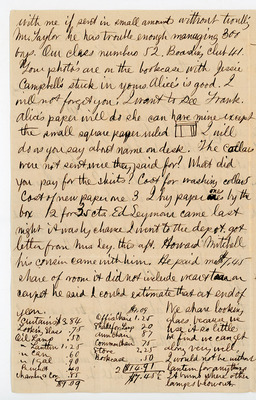 with me if sent in small amount without trouble
Mr. Taylor he has trouble enough managing 800
boys. Our class numbers 52. Boarding club 41.
Your photo's are on the bookcase with Jessie
Campbells stuck in yours Alice's is good. I
will not forget you. I want to see Frank.
Alice's paper will do she can have mine except
the small square paper ruled I will
do as you say about name on desk. The collars
were not sent were they paid for? What did
you pay for the skirts? Cost for washing collars
Cost of new paper one 3 I buy paper by the
box 12 for 25 cts. Ed Seymour came last
night it was by chance I went to the depot. got
letter from Mrs Ley this aft. Howard Mitchell
his cousin came with him. He paid me $7.45
share of room it did not include wear &
carpet he said I could estimate that at end of
year.
Curtains $3.84
Looking Glass .75
Oil Lamp .50
" Lantern 1.25
" can .60
" 1 gal .40
Bucket .40
$7.09
$7.09
Office chair 1.25
Student Lamp 2.0
armchair .87
Commode .75
Stove
Bookcase .50
2)14.91
$7.45½
We share looking
glass because we
use it so little
he finds we can get
along very well.
I would not be without
lantern for anything
It wind where other
lamps blow out.